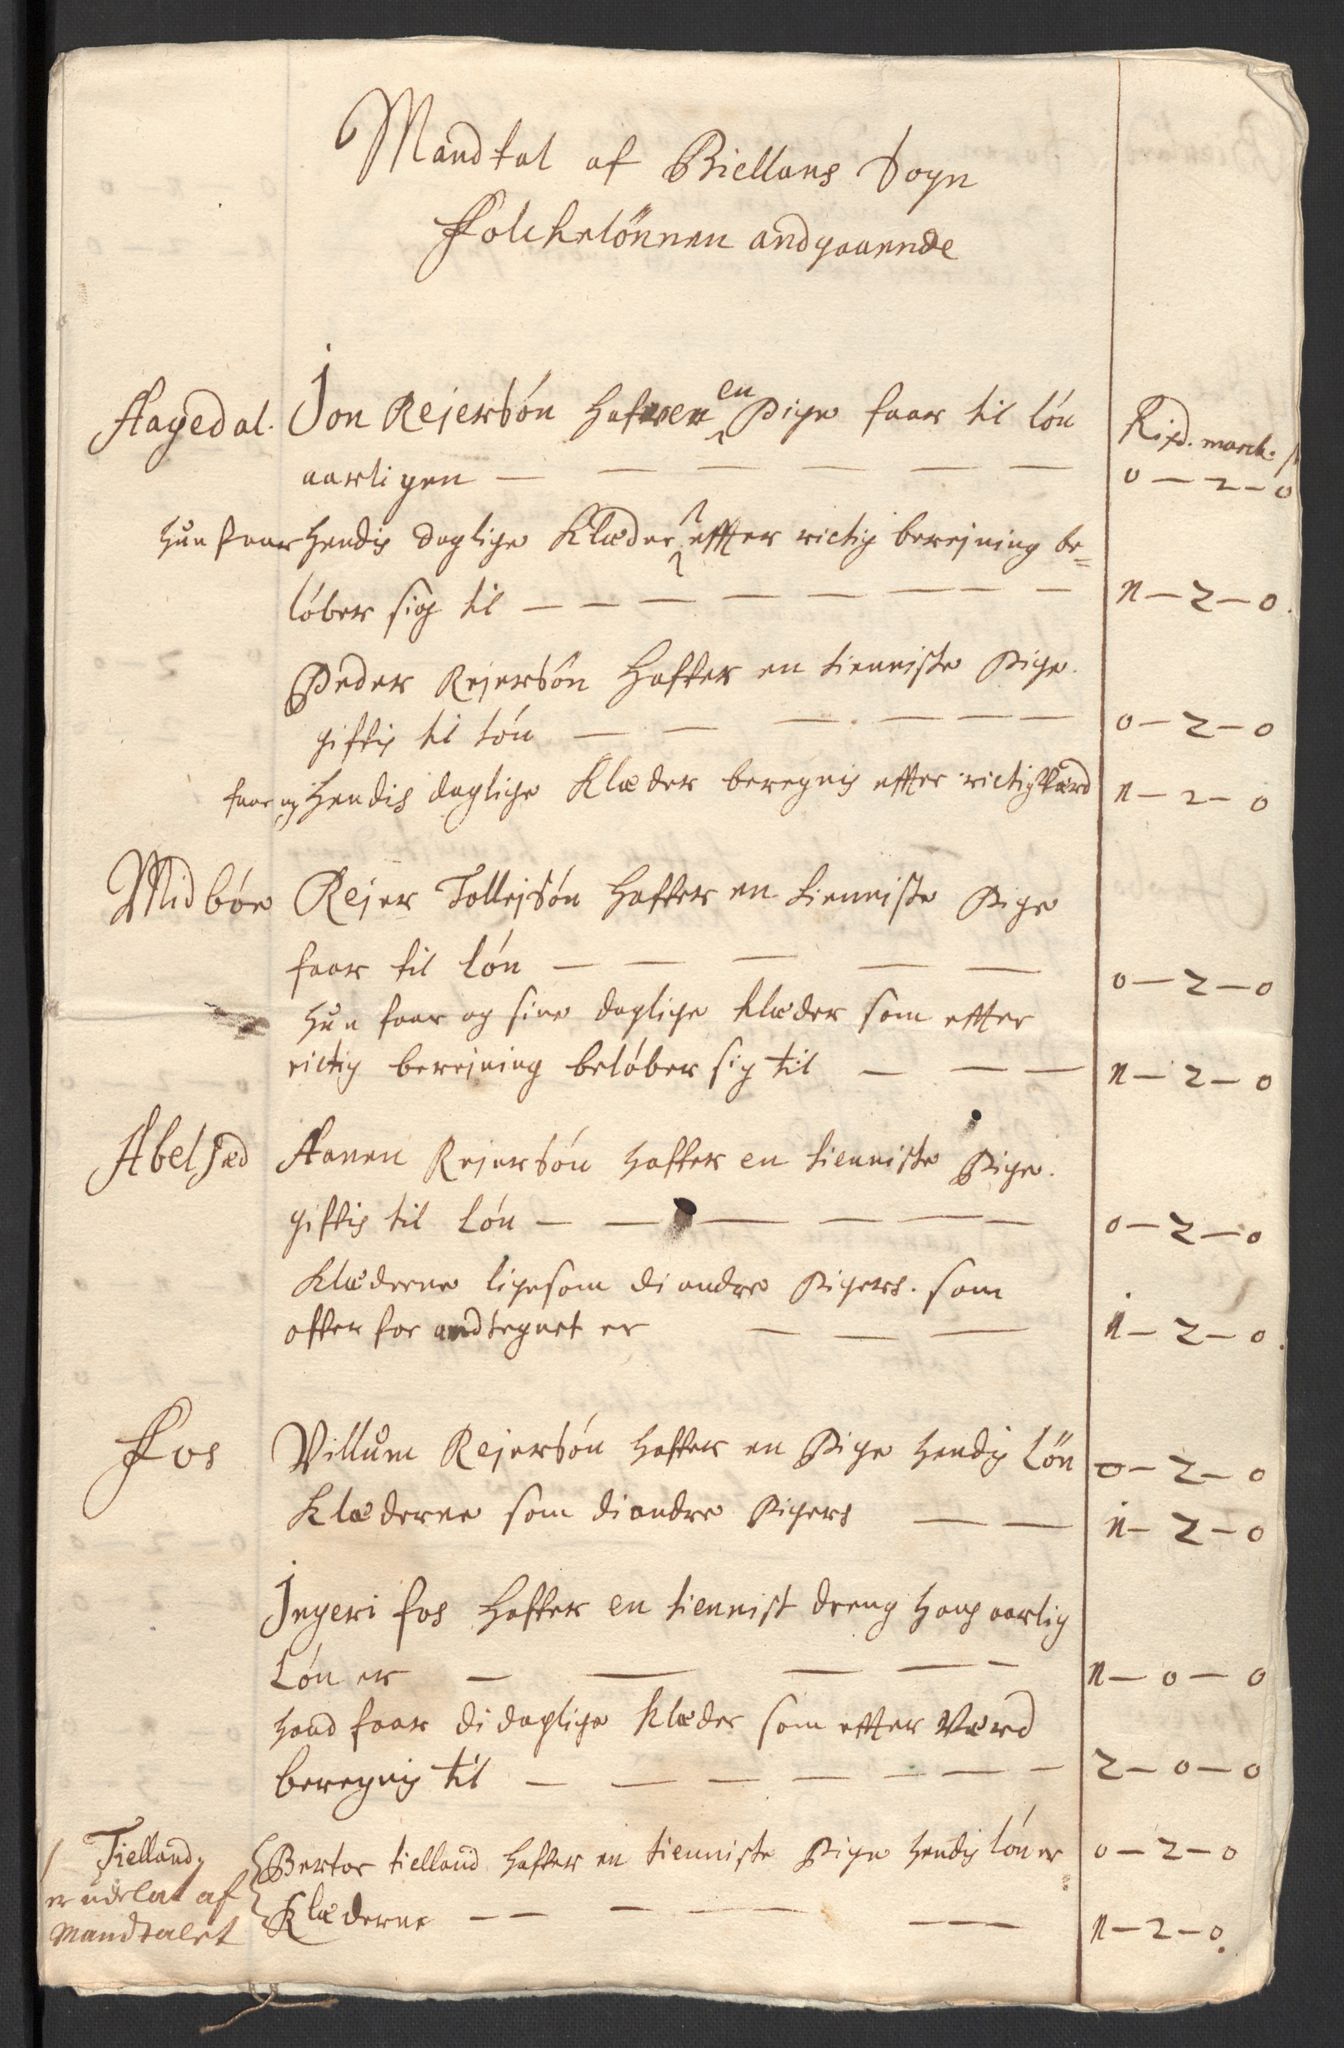 Mandtal af Biellans Sogn
Folchelönnen andgaaende
Aagedal. Jon Rejersön hafver en Pige faar til lön Rixd. march. s
aarligen — — — — — — 0 — 2 — 0
hun faar hendis daglige Klæder, effter rictig berejning be=
löber sig til — — — — — — — — n — 2 — 0.
Peder Rejersön haffer en tienniste Pige.
giftis til lön — — — — — — 0 — 2 — 0
faar og hendis daglige Klæder beregnis effter rictig værd n — 2 — 0
Midböe Rejer Tollejsön haffer en tienniste Pige
faar til lön — — — — — 0 — 2 — 0
hun faar og sine daglige klæder som effter
rictig berejning belöber sig til — — — n — 2 — 0
Abelsæd Aanen Rejersön haffer en tienniste Pige.
giftis til lön — — — — — — 0 — 2 — 0
Klæderne ligesom di andre Pigers. som
offer for andtegnet er — — — n — 2 — 0.
Fos Villum Rejersön haffer en Pige hendis lön 0 — 2 — 0
Klæderne som di andre Pigers — — n — 2 — 0
Ingeri fos haffer en tiennist dreng hans aarlig
Lön er — — — — — n — 0 — 0
hand faar di daglige Klæder som effter Værd
beregnis til — — — — — — — 2 — 0 — 0
Tielland, Bertor tielland haffer en tienniste Pige hendis lön er 0 — 2 — 0
er udelat af
Mandtalet Klæderne — — — — — n — 2 — 0.